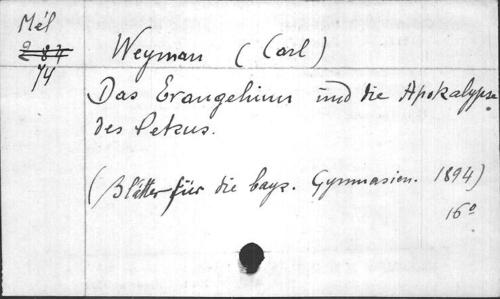 Mél
74
Weyman (Carl)
Das Evangelium und die Apokalypse
des Petrus.
(Blätter für die bayr. Gymnasien. 1894)
16°